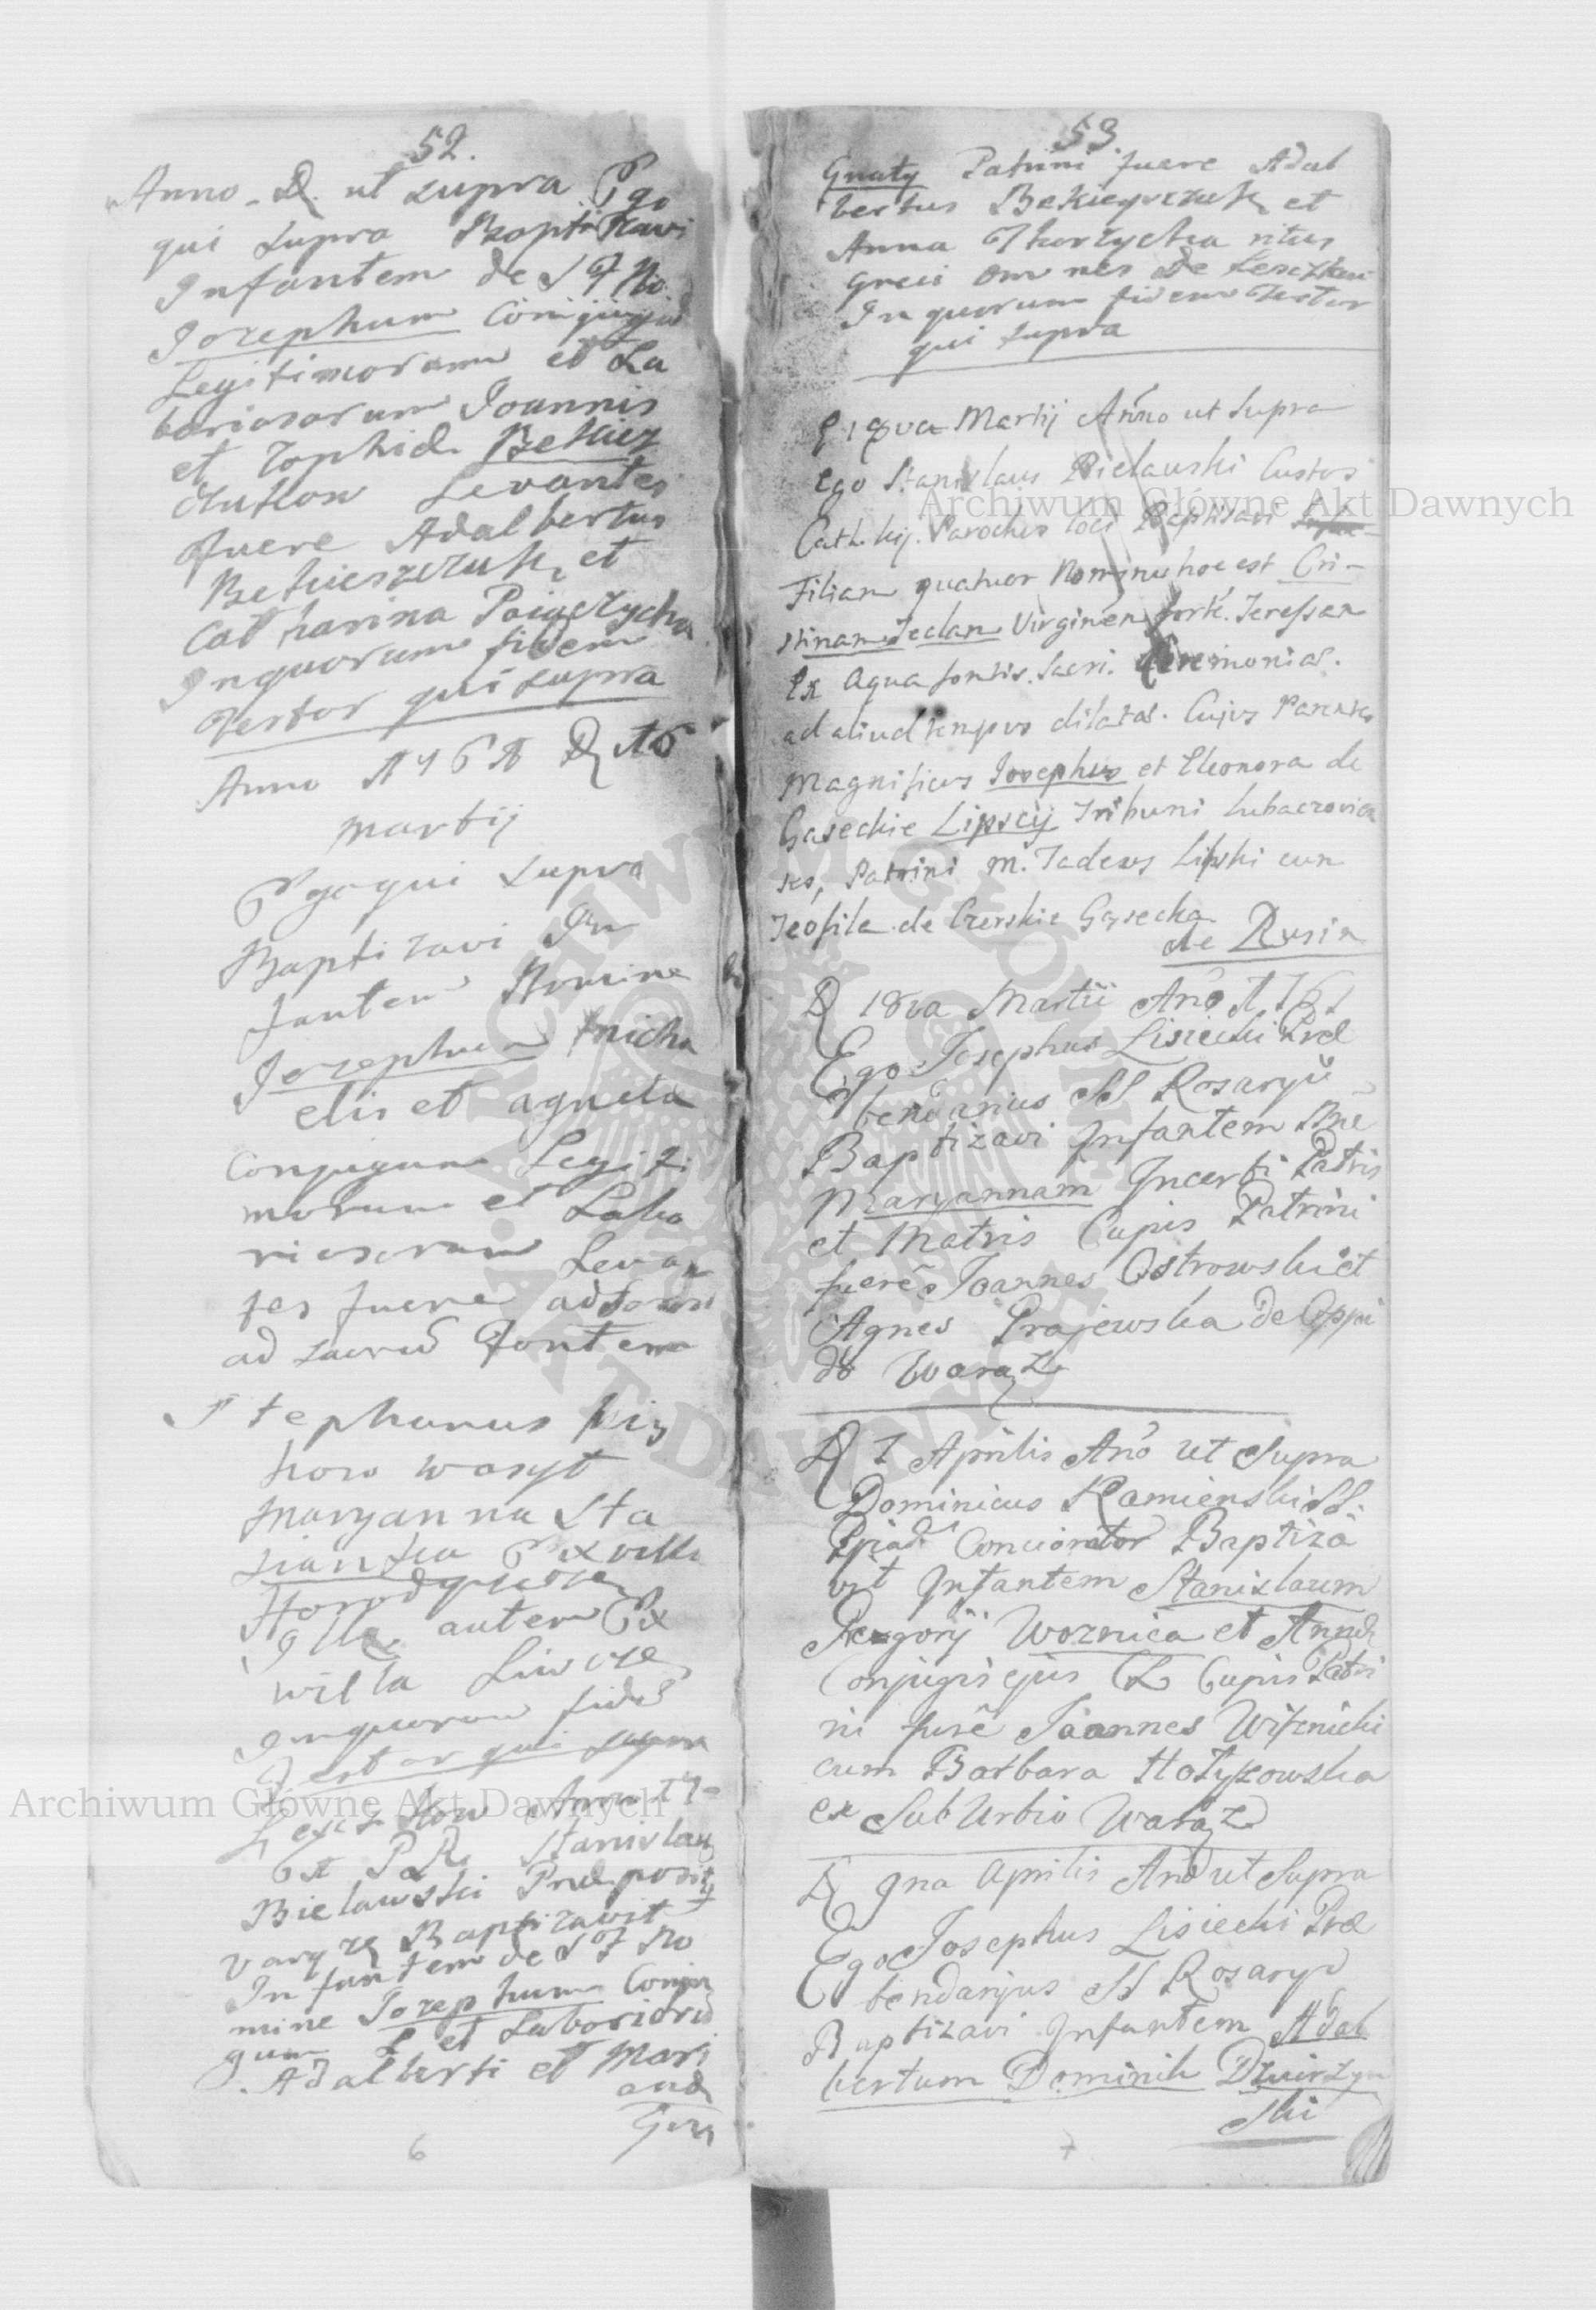 52.
Anno D. ut supra Ego
qui supra Baptizavi
Infantem de S F No
Jozephum Conjugu
Legitimorum et La
boriosorum Joannis
et Zophiæ Bekiez
Levantes
fuere Adalbertus
Bekieszczuk et
Catharina
Inquorum fidem
Testor qui supra
Anno 1761 D 16
Martij
Ego qui supra
Baptizavi In
fantem Nomine
Jozephum Micha
elis et Agneta
Conjugum Legiti
morum et Labo
riosorum Levan
tes fuere
ad sacrū Fontem
Stephanus
Maryanna Sta
Ex villa
Horodyszcze
Illa autem Ex
willa Liwcze
Inquorum fidē
Testor qui supra
Anno 17
61 P R Stanislaus
Bielawski Præposit9
Baptizavit
Infantem de S F No
mine Jozephum Conju
gum L et Laboriorū
Adalberti et Mari
annæ
6
53.
Gnaty Patrini fuere Adal
bertus Bekieszczuk et
Anna ritus
Greci omnes De
In quorum fidem Testor
qui supra
D 18va Martij Anno ut supra
Ego Stanislaus Bielawski Custos
Parochus loci Baptisavi
Filiam quatuor Nominū hoc est Cri-
stinam Teclam Virginem Teressam
Ex aqua fontis. Sacri. Ceremonias.
ad aliud tempus dilatas. Cujus Parentes
Magnificus Josephus et Eleonora de
Gaseckie Lipscij Tribuni Lubaczovien
ses, Patrini M. Tadeus Lipski cum
Teofila de Czerskie Gąsecka
de Rusin
D 18va Martii Ano 1761
Ego Josephus Lisiecki Præ
bendarius SS Rosaryii
Baptizavi Infantem Nne
Maryannam Incerti Patris
et Matris Cujus Patrini
fuere Joannes Ostrowski et
Agnes Grajewska de Oppi
do Waręz
D 7 Aprilis Ano ut Supra
Dominicus Kamienski SS.
Concionator Baptiza
vit Infantem Stanislaum
Gregorij Woznica et Annæ
Conjugis ejus L Cujus Patri
ni fuere Joannes
cum Barbara
ex SubUrbio Waręz
D 9na Aprilis Ano ut Supra
Ego Josephus Lisiecki Præ
bendarjus SS Rosaryi
Baptizavi Infantem Adal
bertum Dominik Dzwirzyn
ski
7
Archiwum Główne Akt Dawnych
Archiwum Główne Akt Dawnych
ARCHIWUM GŁÓWNE
AKT DAWNYCH